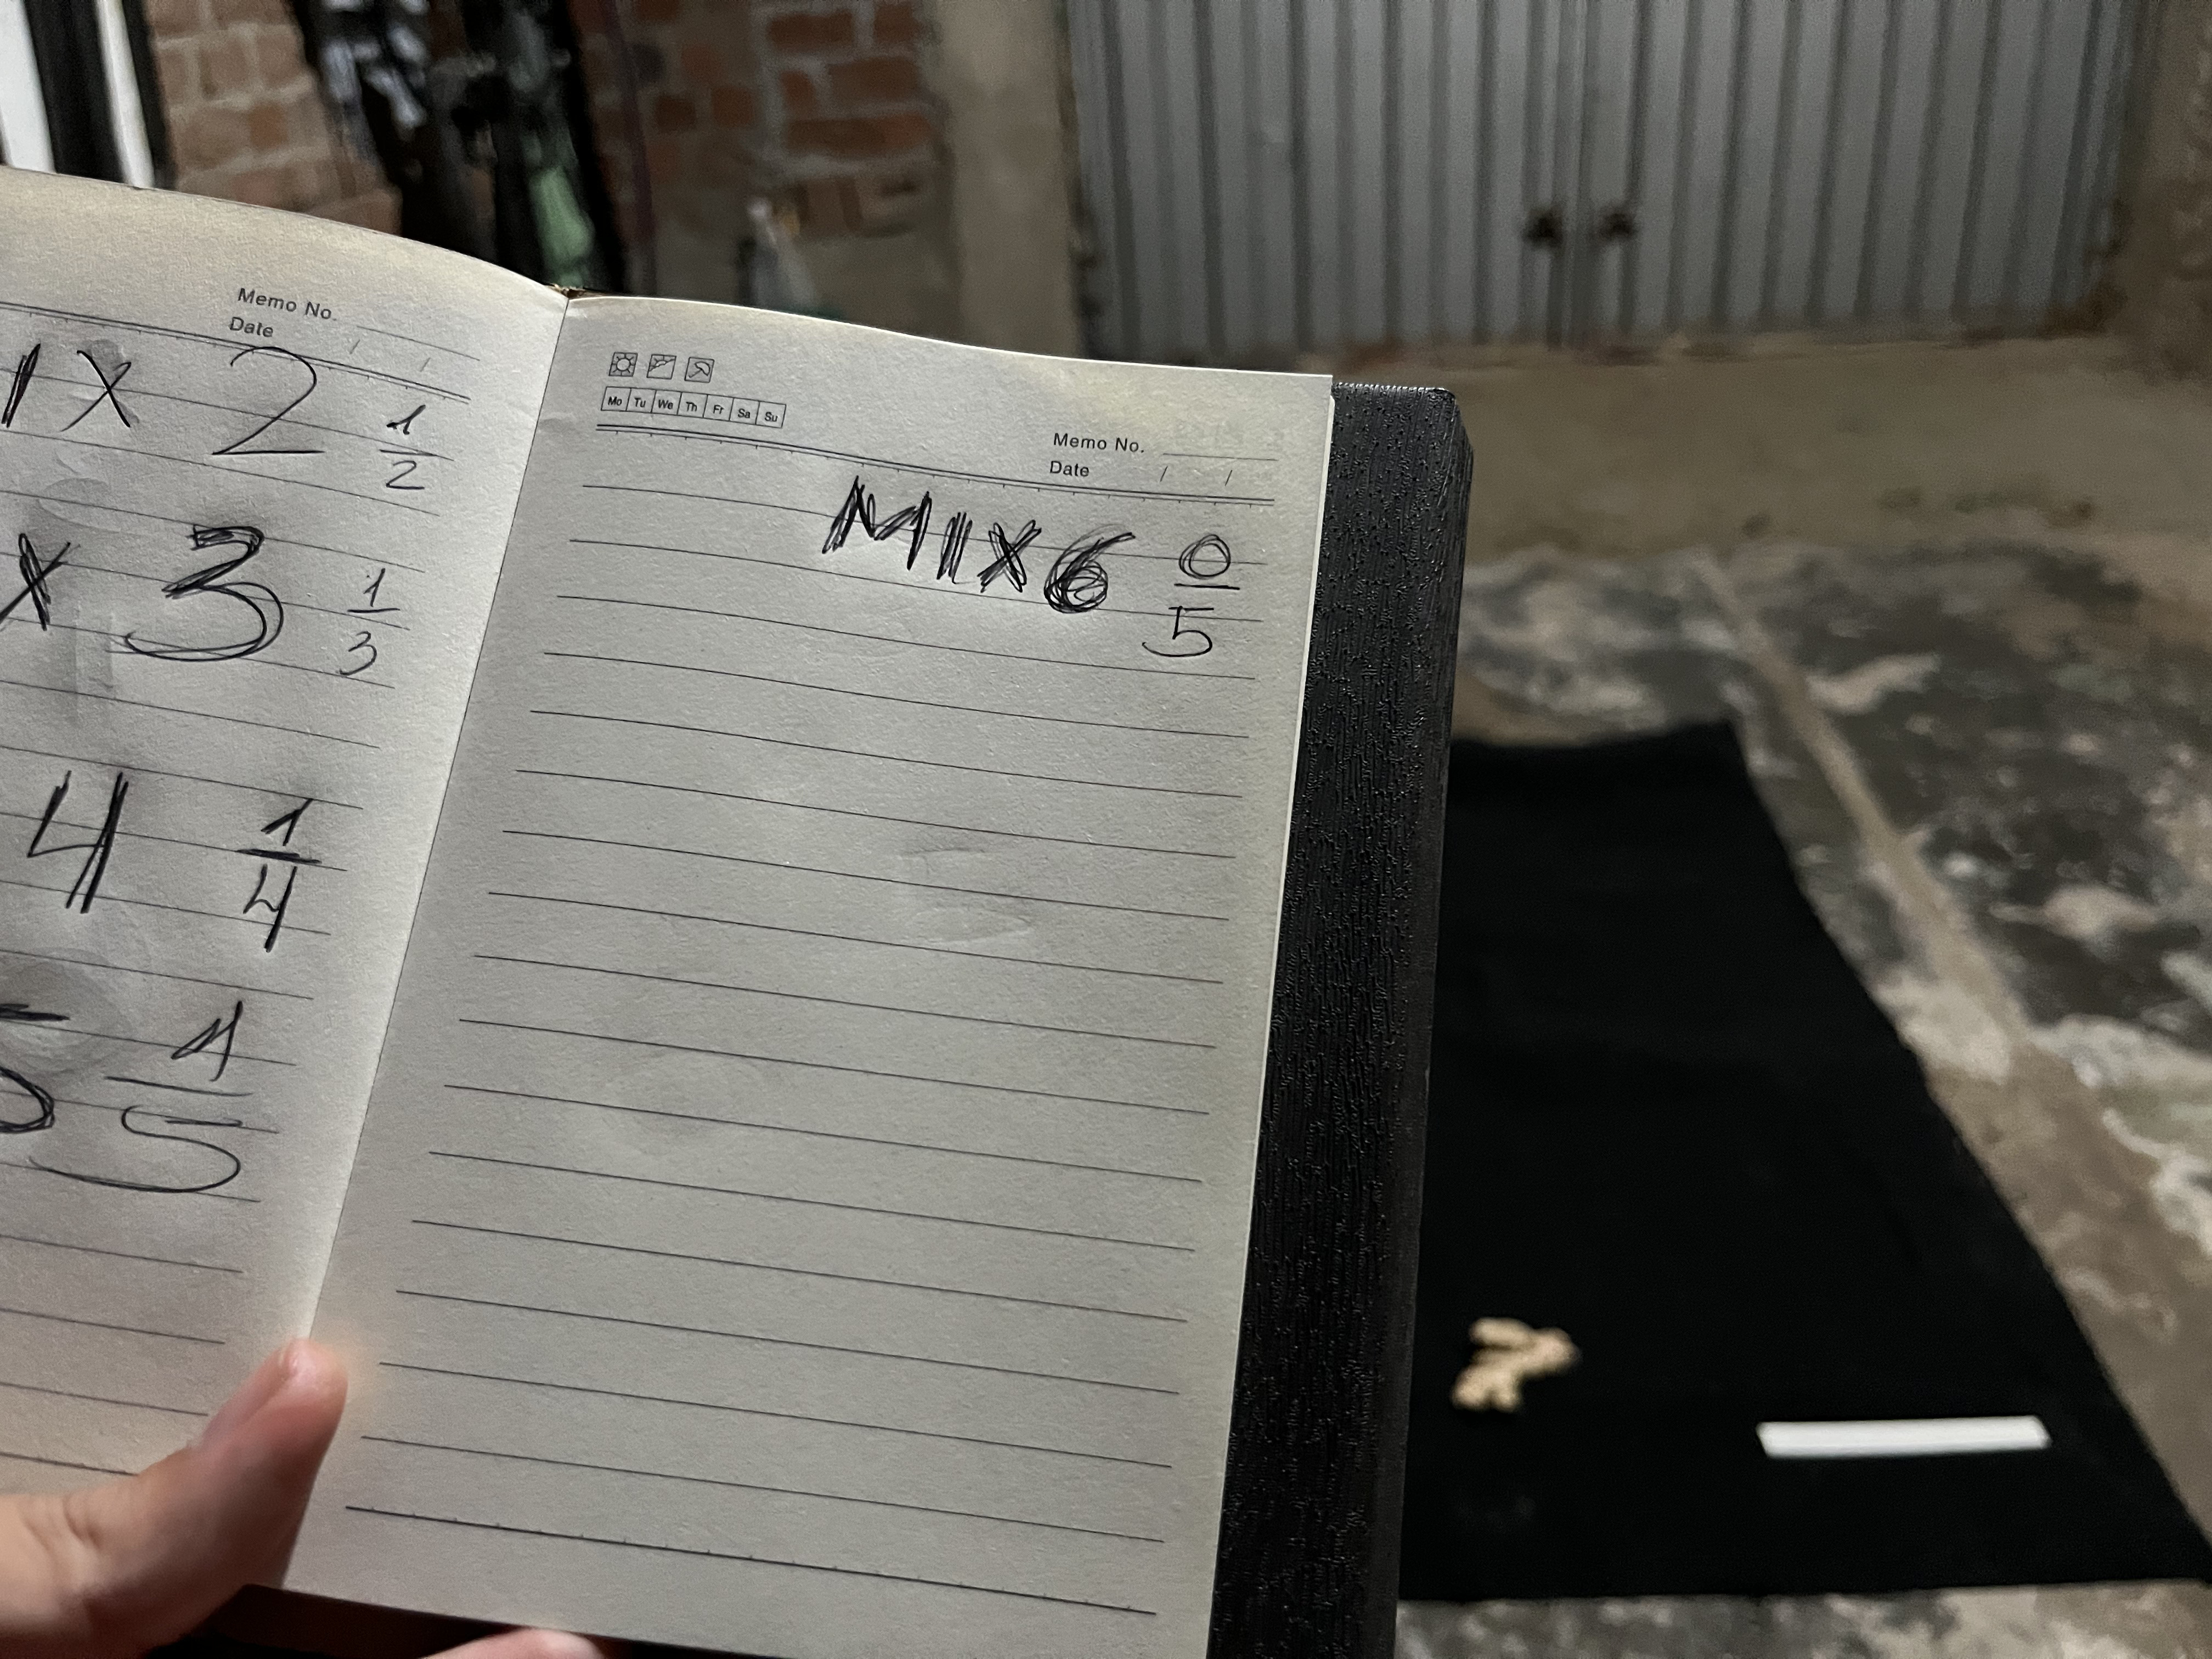 Memo No.
Date / /
IX 2 1/2
X 3 1/3
4 1/4
5 1/5
Mo Tu We Th Fr Sa Su
Memo No.
Date / /
MIX6 0/5